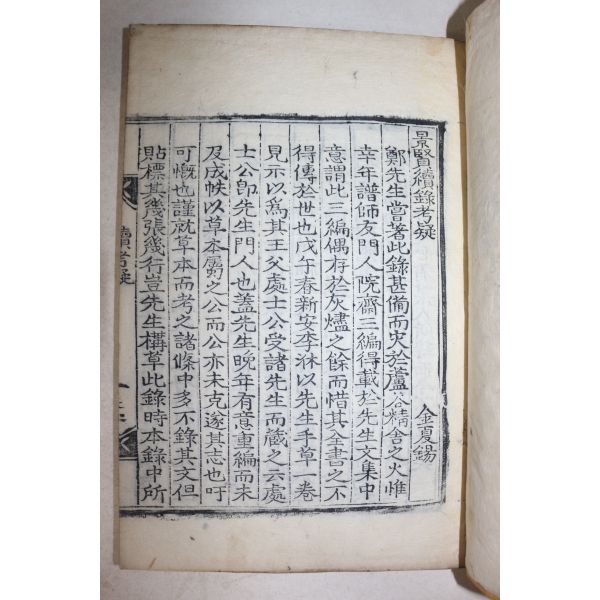 景賢續錄考疑
金夏錫
鄭先生嘗著此錄甚備而灾於蘆谷精舍之火惟
幸年譜師友門人院齋三編得載於先生文集中
意謂此三編偶存於灰燼之餘而惜其全書之不
得傳於世也戊午春新安李㳜以先生手草一卷
見示以爲其王父處士公受諸先生而藏之云處
士公卽先生門人也蓋先生晩年有意重編而未
及成帙以草本屬之公而公亦未克遂其志也吁
可慨也謹就草本而考之諸條中多不錄其文但
貼標其幾張幾行豈先生構草此錄時本錄中所
續考疑